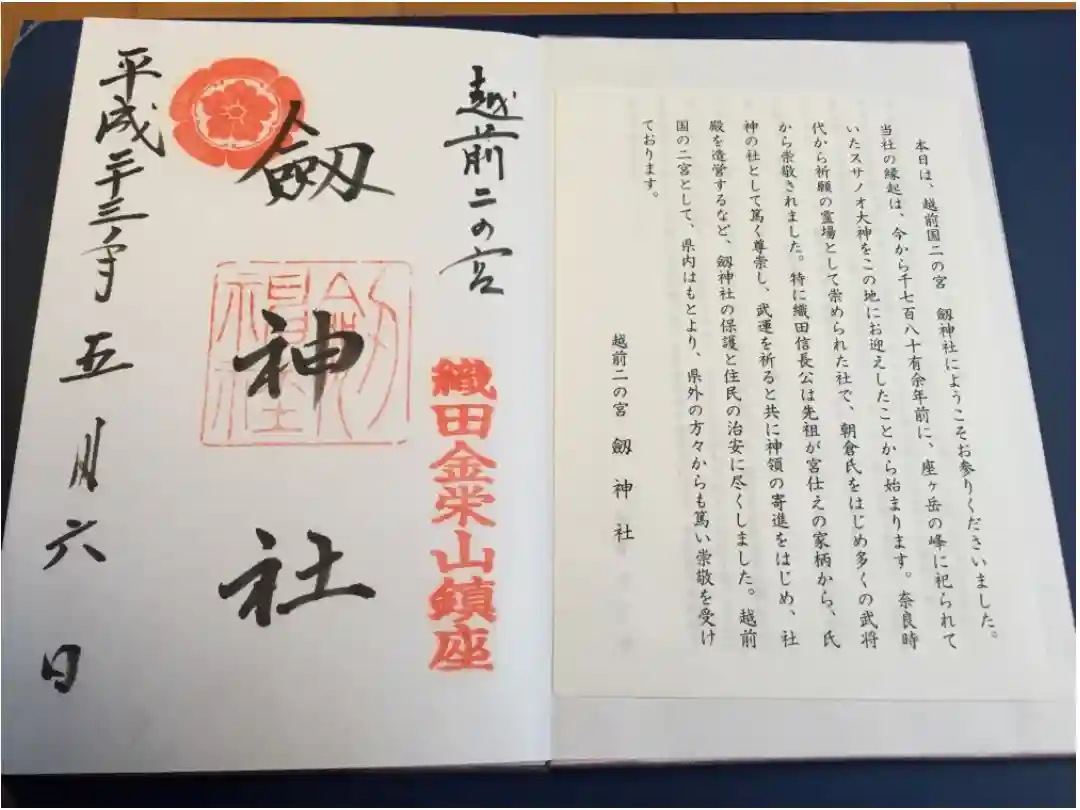 本日は、越前国二の宮　劔神社にようこそお参りくださいました。
当社の縁起は、今から千七百八十有余年前に、座ヶ岳の峰に祀られて
いたスサノオ大神をこの地にお迎えしたことから始まります。奈良時
代から祈願の霊場として崇められた社で、朝倉氏をはじめ多くの武将
から崇敬されました。特に織田信長公は先祖が宮仕えの家柄から、氏
神の社として篤く尊崇し、武運を祈ると共に神領の寄進をはじめ、社
殿を造営するなど、劔神社の保護と住民の治安に尽くしました。越前
国の二宮として、県内はもとより、県外の方々からも篤い崇敬を受け
ております。
越前二の宮　劔神社
越前二の宮
織田金栄山鎮座
劔神社
平成二十三年五月六日